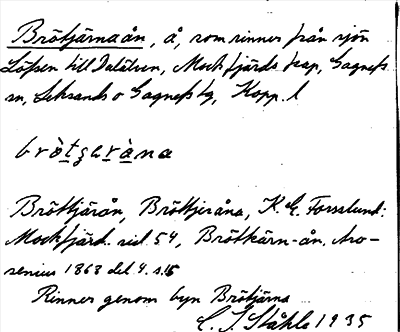 Brötjärnaån, å, som rinner från sjön
Löfsen till Dalälven, Mockfjärds kap, Gagnefs
sn, Leksands o Gagnefs tg, Kopp. l
Bröttjärån, Bröttjeråna, K. G. Forsslund:
Mockfjärd. sid. 54, Brötkärn-ån. Aro-
senius 1868 del 4. s. 15
Rinner genom byn Brötjärna
C. J. Ståhle 1935